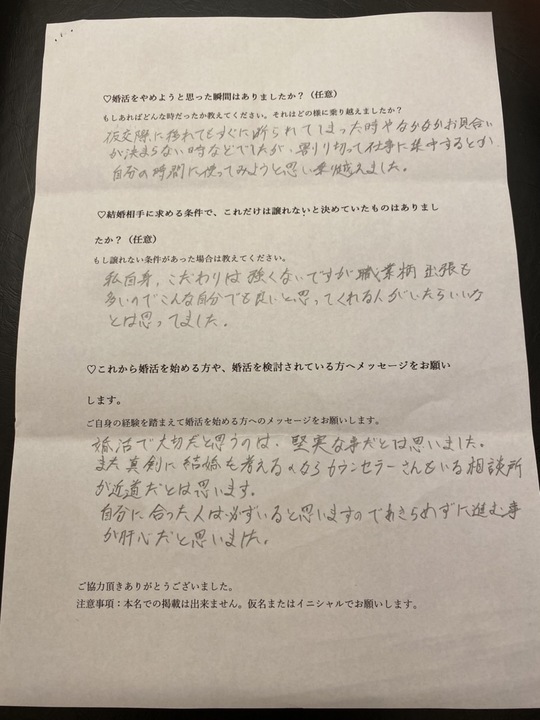 ♡婚活をやめようと思った瞬間はありましたか？（任意）
もしあればどんな時だったか教えてください。それはどの様に乗り越えましたか？
仮交際に進れてもすぐに断られてしまった時やなかなかお見合い
が決まらない時などでしたが、割り切って仕事に集中するとか
自分の時間に使ってみようと思い乗り越えました。
♡結婚相手に求める条件で、これだけは譲れないと決めていたものはありまし
たか？（任意）
もし譲れない条件があった場合は教えてください。
私自身、こだわりは強くないですが職業柄 出張も
多いのでこんな自分でも良いと思ってくれる人がいたらいいな
とは思ってました。
♡これから婚活を始める方や、婚活を検討されている方へメッセージをお願い
します。
ご自身の経験を踏まえて婚活を始める方へのメッセージをお願いします。
婚活で大切だと思うのは、堅実な事だとは思いました。
また真剣に結婚も考えるのならカウンセラーさんもいる相談所
が近道だとは思います。
自分に合った人は必ずいると思いますのであきらめずに進む事
が肝心だと思いました。
ご協力頂きありがとうございました。
注意事項：本名での掲載は出来ません。仮名またはイニシャルでお願いします。